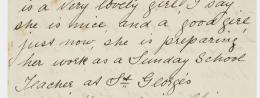 is a very lovely girl I say
she is nice, and a good girl
just now, she is preparing
her work as a Sunday School
Teacher at St. George's